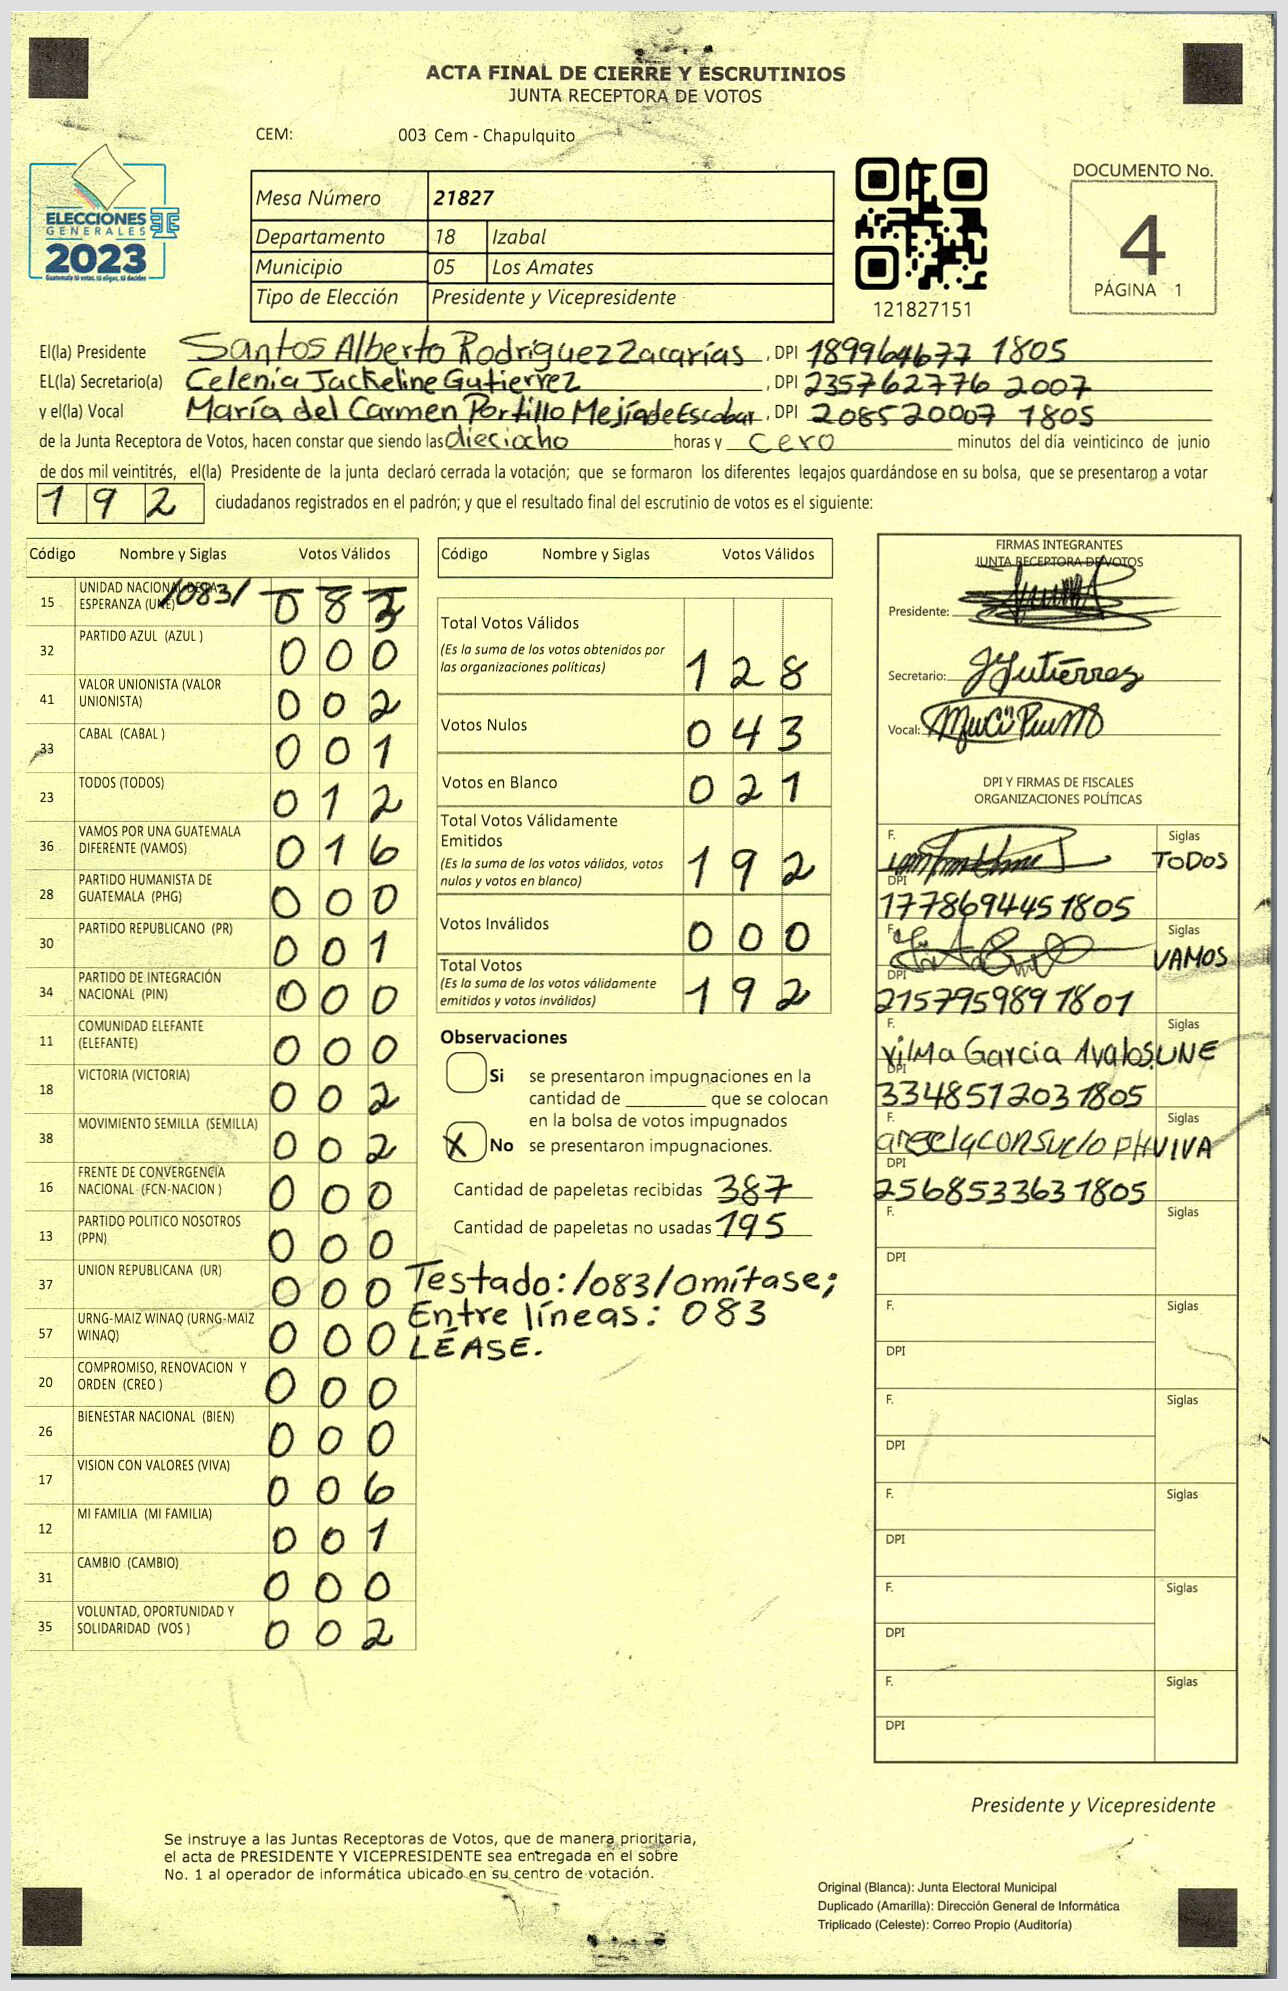 ACTA FINAL DE CIERRE Y ESCRUTINIOS
JUNTA RECEPTORA DE VOTOS
CEM: 003 Cem - Chapulquito
ELECCIONES
GENERALES
2023
Guatemala tú votas, tú eliges, tú decides
Mesa Número 21827
Departamento 18 Izabal
Municipio 05 Los Amates
Tipo de Elección Presidente y Vicepresidente
121827151
DOCUMENTO No.
4
PÁGINA 1
El(la) Presidente Santos Alberto Rodriguez Zacarías , DPI 189964677 1805
EL(la) Secretario(a) Celenia Jackeline Gutierrez , DPI 235762776 2007
y el(la) Vocal María del Carmen Portillo Mejía de Escobar , DPI 208520007 1805
de la Junta Receptora de Votos, hacen constar que siendo las dieciocho horas y cero minutos del día veinticinco de junio
de dos mil veintitrés, el(la) Presidente de la junta declaró cerrada la votación; que se formaron los diferentes legajos guardándose en su bolsa, que se presentaron a votar
192 ciudadanos registrados en el padrón; y que el resultado final del escrutinio de votos es el siguiente:
Código Nombre y Siglas Votos Válidos
15 UNIDAD NACIONAL DE LA
ESPERANZA (UNE) /083/ 083
32 PARTIDO AZUL (AZUL ) 000
41 VALOR UNIONISTA (VALOR
UNIONISTA) 002
33 CABAL (CABAL ) 001
23 TODOS (TODOS) 012
36 VAMOS POR UNA GUATEMALA
DIFERENTE (VAMOS) 016
28 PARTIDO HUMANISTA DE
GUATEMALA (PHG) 000
30 PARTIDO REPUBLICANO (PR) 001
34 PARTIDO DE INTEGRACIÓN
NACIONAL (PIN) 000
11 COMUNIDAD ELEFANTE
(ELEFANTE) 000
18 VICTORIA (VICTORIA) 002
38 MOVIMIENTO SEMILLA (SEMILLA) 002
16 FRENTE DE CONVERGENCIA
NACIONAL (FCN-NACION ) 000
13 PARTIDO POLITICO NOSOTROS
(PPN) 000
37 UNION REPUBLICANA (UR) 000
57 URNG-MAIZ WINAQ (URNG-MAIZ
WINAQ) 000
20 COMPROMISO, RENOVACION Y
ORDEN (CREO ) 000
26 BIENESTAR NACIONAL (BIEN) 000
17 VISION CON VALORES (VIVA) 006
12 MI FAMILIA (MI FAMILIA) 001
31 CAMBIO (CAMBIO) 000
35 VOLUNTAD, OPORTUNIDAD Y
SOLIDARIDAD (VOS ) 002
Código Nombre y Siglas Votos Válidos
Total Votos Válidos
(Es la suma de los votos obtenidos por
las organizaciones políticas) 128
Votos Nulos 043
Votos en Blanco 021
Total Votos Válidamente
Emitidos
(Es la suma de los votos válidos, votos
nulos y votos en blanco) 192
Votos Inválidos 000
Total Votos
(Es la suma de los votos válidamente
emitidos y votos inválidos) 192
Observaciones
Si se presentaron impugnaciones en la
cantidad de ________ que se colocan
en la bolsa de votos impugnados
X No se presentaron impugnaciones.
Cantidad de papeletas recibidas 387
Cantidad de papeletas no usadas 195
Testado: /083/ omítase;
Entre líneas: 083
LÉASE.
FIRMAS INTEGRANTES
JUNTA RECEPTORA DE VOTOS
Presidente:
Secretario: JGutiérrez
Vocal:
DPI Y FIRMAS DE FISCALES
ORGANIZACIONES POLÍTICAS
F. Siglas TODOS
DPI
177869445 1805
F. Siglas VAMOS
DPI
215795989 1801
F. Siglas
Vilma Garcia Avalos. UNE
DPI
334851203 1805
F. Siglas
VIVA
DPI
256853363 1805
F. Siglas
DPI
F. Siglas
DPI
F. Siglas
DPI
F. Siglas
DPI
F. Siglas
DPI
F. Siglas
DPI
Presidente y Vicepresidente
Se instruye a las Juntas Receptoras de Votos, que de manera prioritaria,
el acta de PRESIDENTE Y VICEPRESIDENTE sea entregada en el sobre
No. 1 al operador de informática ubicado en su centro de votación.
Original (Blanca): Junta Electoral Municipal
Duplicado (Amarilla): Dirección General de Informática
Triplicado (Celeste): Correo Propio (Auditoría)